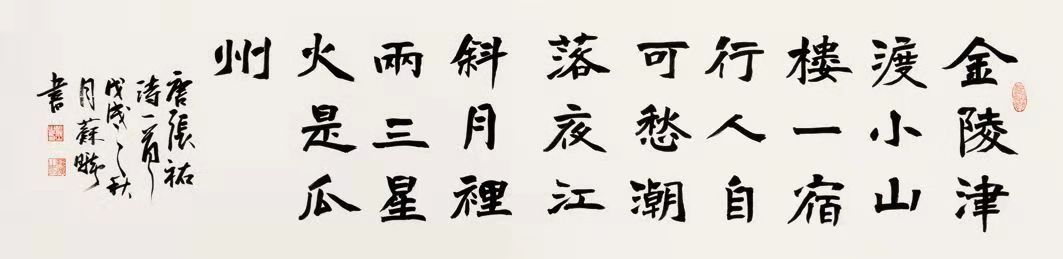 金陵津
渡小山
樓一宿
行人自
可愁潮
落夜江
斜月裡
兩三星
火是瓜
州
唐張祐
詩一首
戊戌之秋
月蘇
書